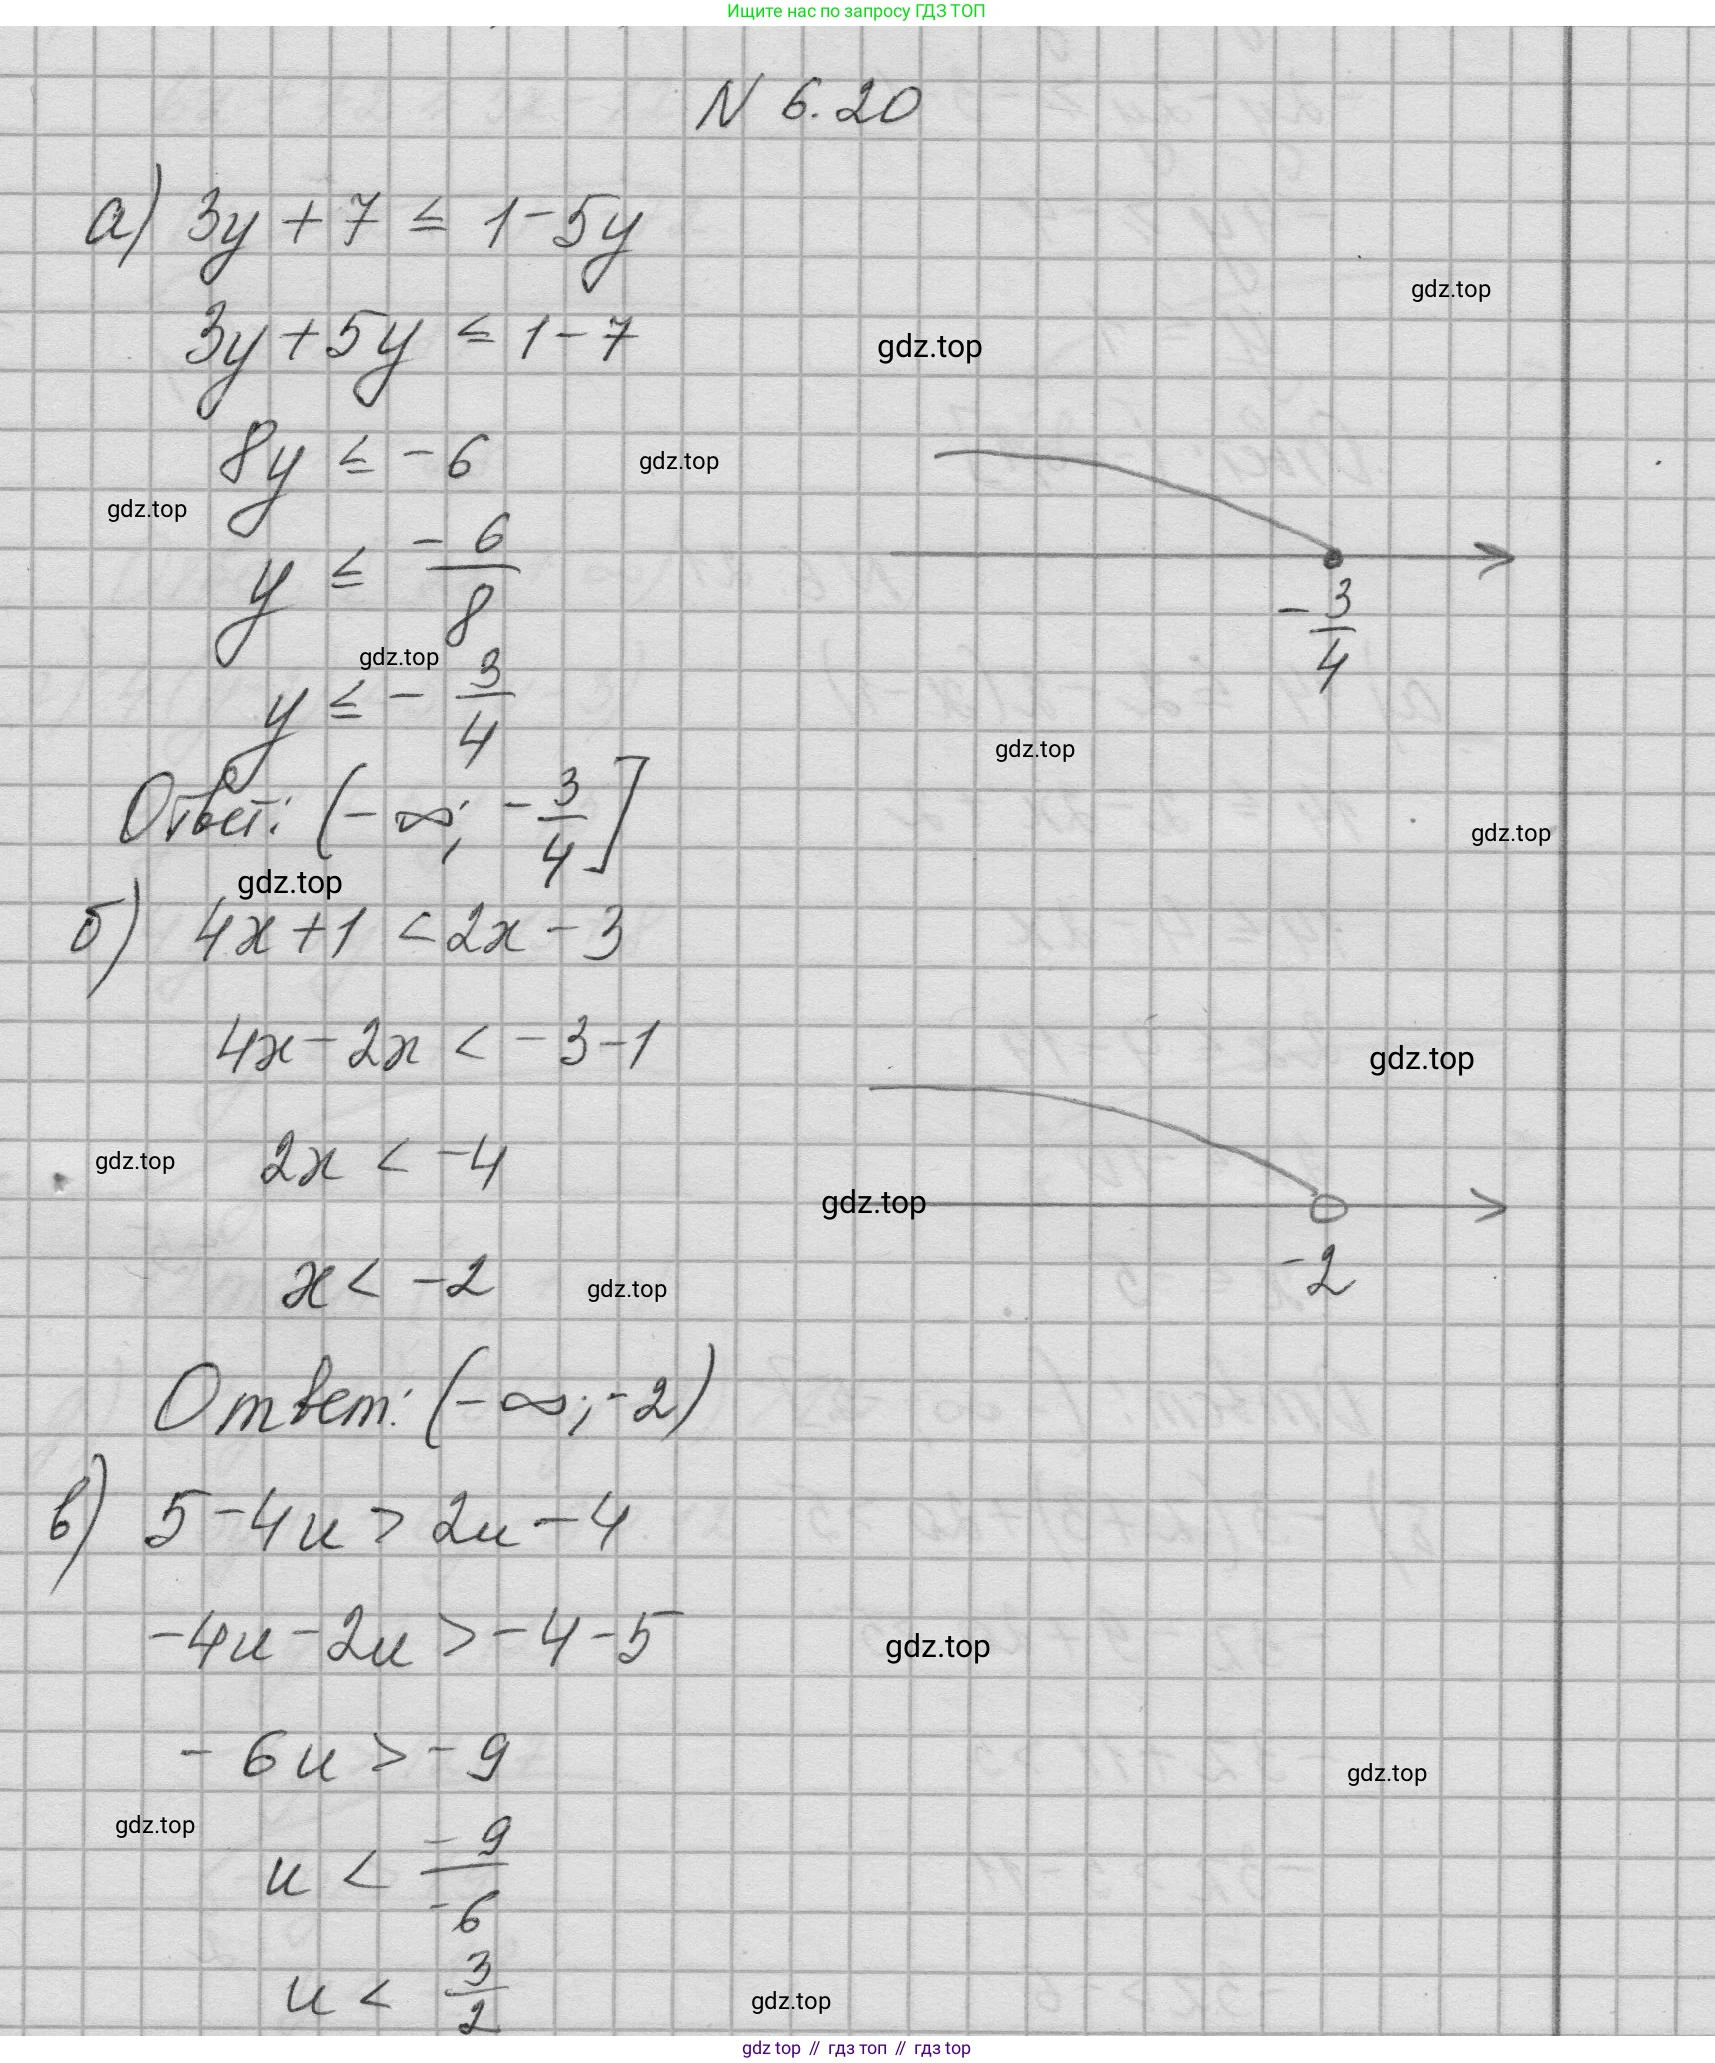 Ищите нас по запросу ГДЗ ТОП
N 6.20
а) 3y + 7 ≤ 1 - 5y
gdz.top
3y + 5y ≤ 1 - 7
gdz.top
8y ≤ - 6
gdz.top
gdz.top
y ≤ - 6/8
- 3/4
gdz.top
y ≤ - 3/4
gdz.top
Ответ: (- ∞; - 3/4]
gdz.top
gdz.top
б) 4x + 1 < 2x - 3
4x - 2x < - 3 - 1
gdz.top
gdz.top
2x < -4
gdz.top
x < -2
gdz.top
-2
Ответ: (- ∞; -2)
в) 5 - 4u > 2u - 4
-4u - 2u > -4 - 5
gdz.top
- 6u > - 9
gdz.top
gdz.top
u < -9/-6
u < 3/2
gdz.top
gdz top // гдз топ // гдз top